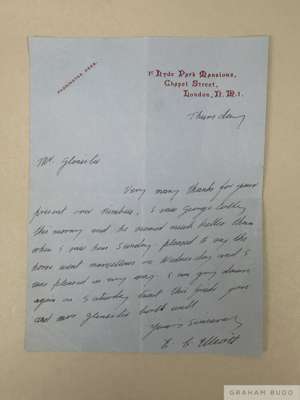 PADDINGTON 2828.
Hyde Park Mansions,
Chapel Street,
London, N.W.1.
Thursday
Mr. Glenister
Very many thanks for your
present over Christmas, I saw George
this morning and he seemed much better than
when I saw him Sunday. pleased to say the
horse went marvellous on Wednesday and I
was pleased in my way. I am going down
again on Saturday trust this finds you
and Mrs Glenister both well
Yours Sincerely
GRAHAM BUDD